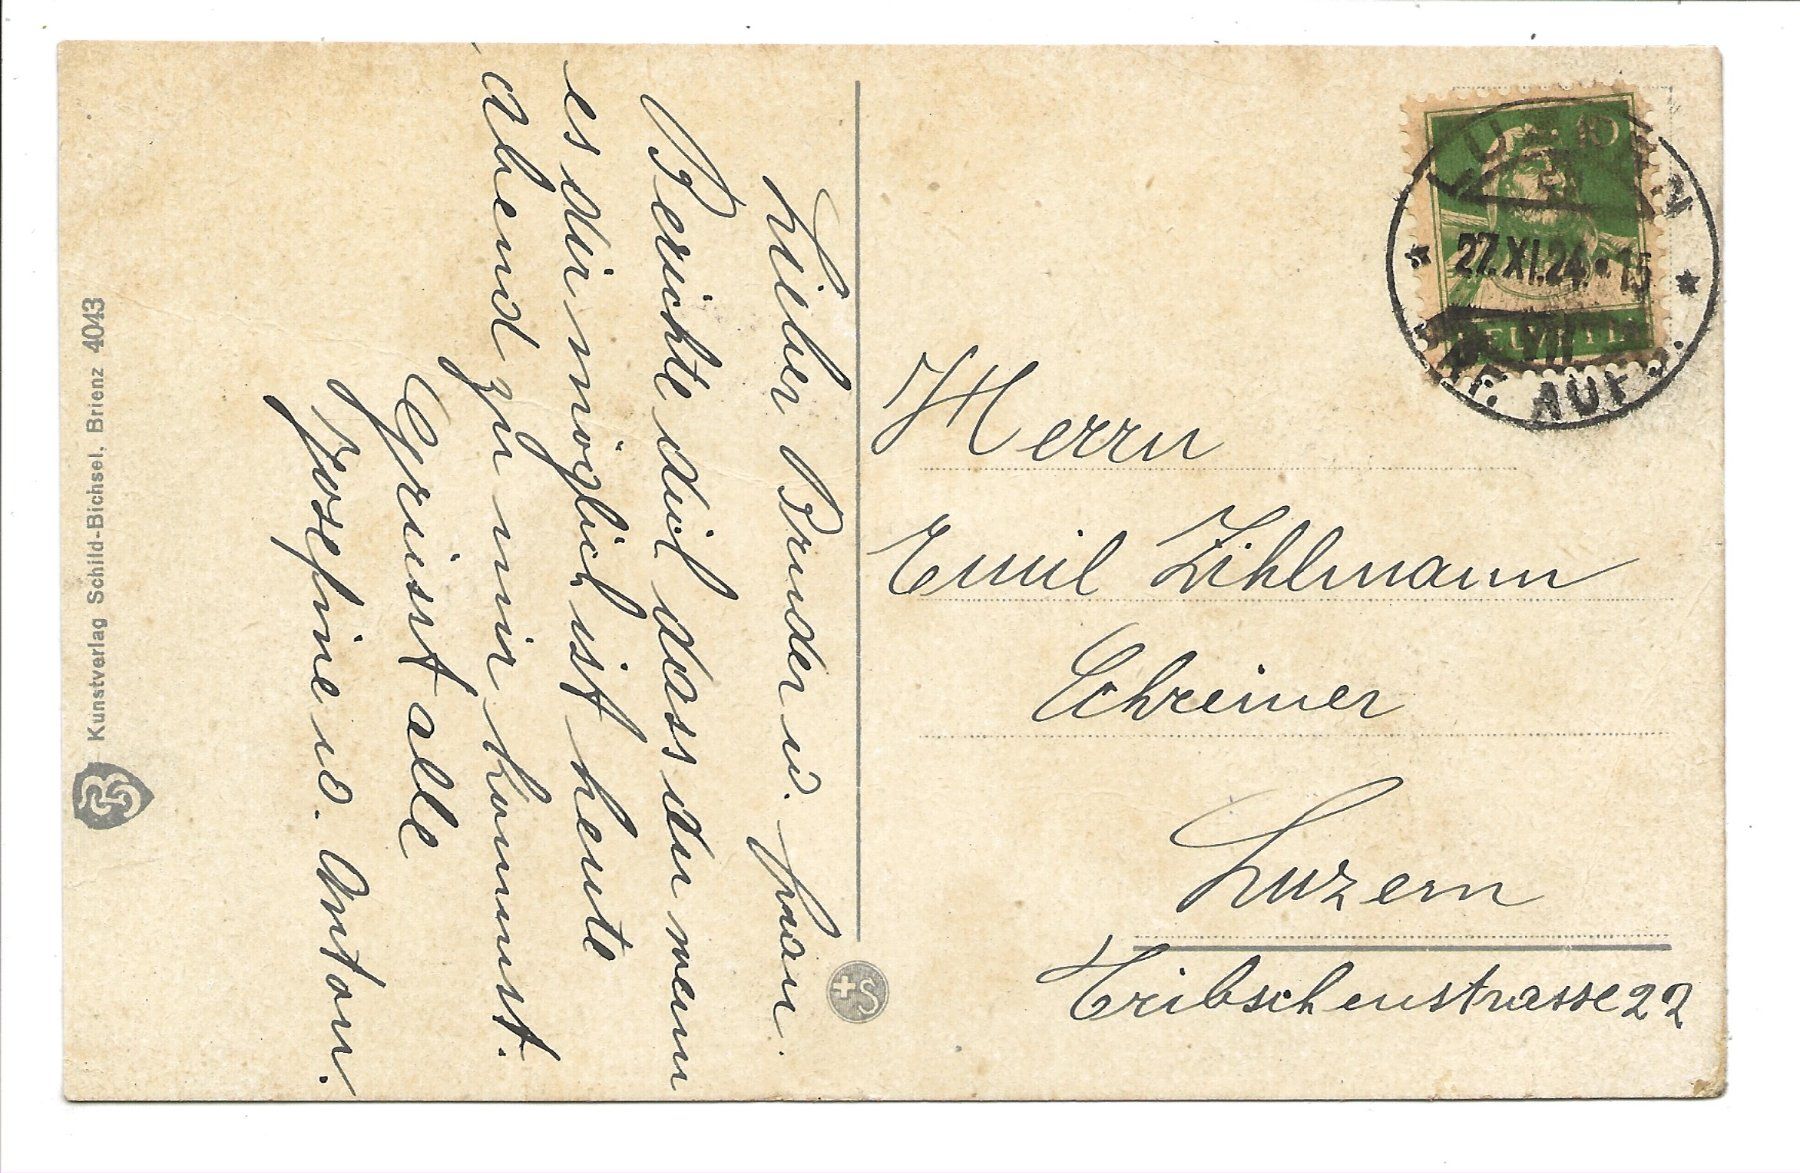 Lieber Bruder u. frau.
Berichte dich dass du wenn
es dir möglich ist heute
abend zu mir kommst.
Grüsst alle
Josefine u. Anton.
Kunstverlag Schild-Bichsel, Brienz 4043
+S
LUZERN
27.XI.24.15
VII
BRF. AUFG.
10
HELVETIA
Herrn
Emil Zihlmann
Schreiner
Luzern
Tribschenstrasse 22